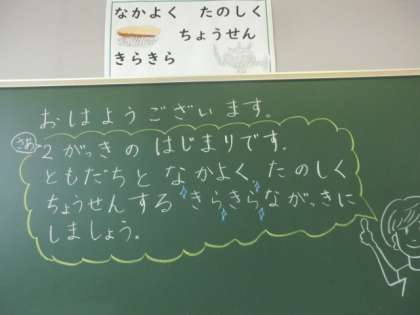 なかよく たのしく
ちょうせん
きらきら
おはようございます。
さあ
2がっきの はじまりです.
ともだちと なかよく、たのしく
ちょうせんする きらきらながっきに
しましょう。